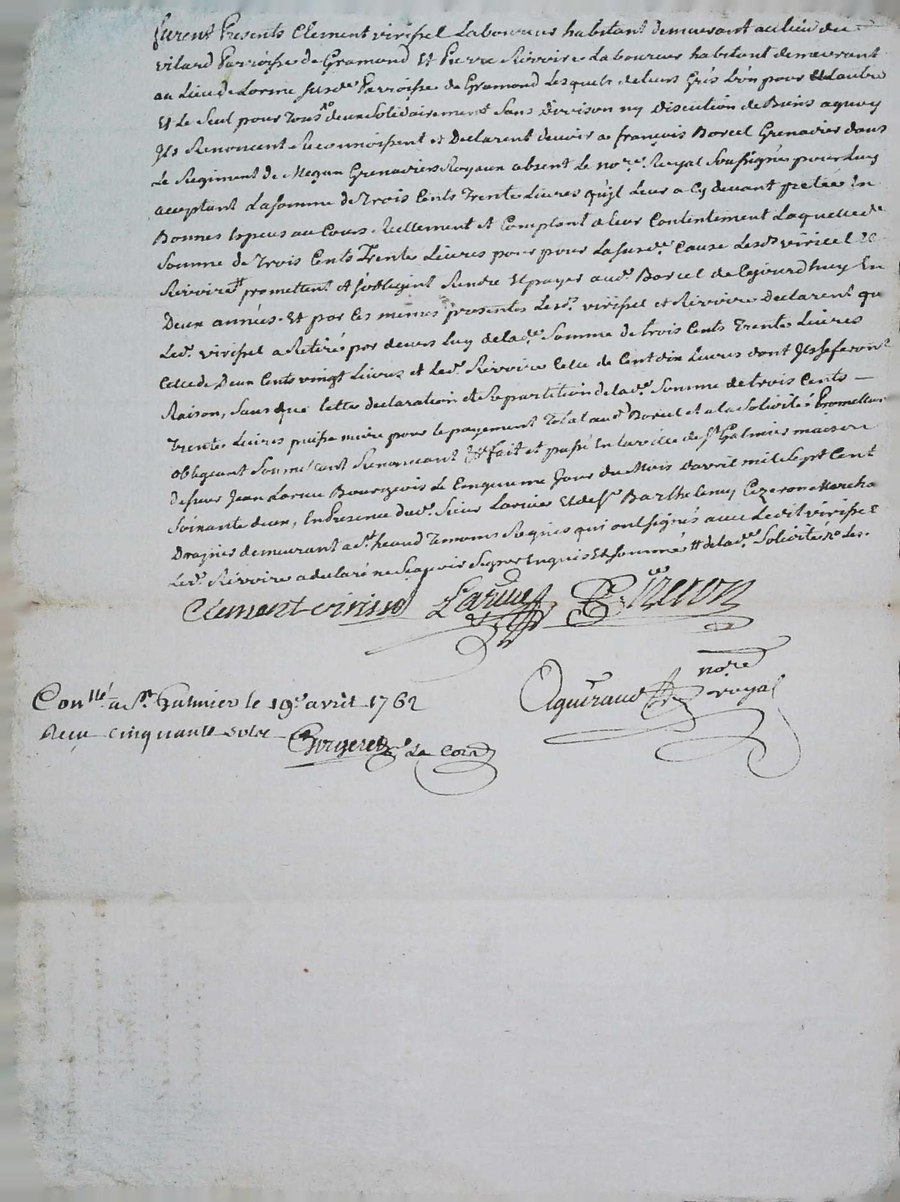 furent Presents Clement virissel Laboureur habitant demeurant au lieu du
vilard Parroisse de Gramond Et Pierre Rivoire Laboureur habitant demeurant
au Lieu de Lorme susde Parroisse de Gramond Lesquels de leurs Gris L'un pour Et L'autre
Et Le Seul pour Tous deux Solidairement Sans Division ny Discution de Biens aquoy
Ils Renoncent Reconnoissent et Declarent devoir a françois Borcel Grenadier dans
Le Regiment de Grenadiers Royaux absent Le nore Royal Soussigné pour Luy
acceptant La somme de Trois Cents Trente Livres qu'jl Leur a Cy devant pretée En
Bonnes Especes au Cours Reellement et Comptant a leur Contentement Laquelle de
Somme de Trois Cents Trente Livres pour pour La susde Cause Lesds viricel Et
Rivoire prometent et s'obligent Rendre Et payer aud Borcel de Cejourdhuy En
Deux années. Et par Ces mêmes presentes Lesds virissel et Rivoire Declarent que
Led. virissel a Retiré par devers Luy de lade Somme de trois Cents Trente Livres
Celle de Deux Cents vingt Livres et Led. Rivoire Celle de Cent dix Livres dont Ils se feront
Raison, Sans que Cette declaration et Repartition de lade Somme de trois Cents
Trente Livres puisse nuire pour le payement Total aud Borcel et a la Solidité Promettant
obligeant Soumettant Renonceant fait et passé En la ville de St Galmier maison
de sieur Jean Larue Bourgeois Le Cinquieme Jour du Mois d'avril mil Sept Cent
Soixante deux, En Presence dud. Sieur Larue Et de Sr Barthelemy Cezeron Marchand
Drapier demeurant a St heand Temoins Requis qui ont signés avec Ledit virissel
Led. Rivoire a declaré ne Sçavoir Signer Enquis Et Sommé de lade Solidité
Clement virissel Larue Cezeron
nore
Aguiraud royal
Conllé a St Galmier le 19e avril 1762
Recu cinquante sols
Bergeret